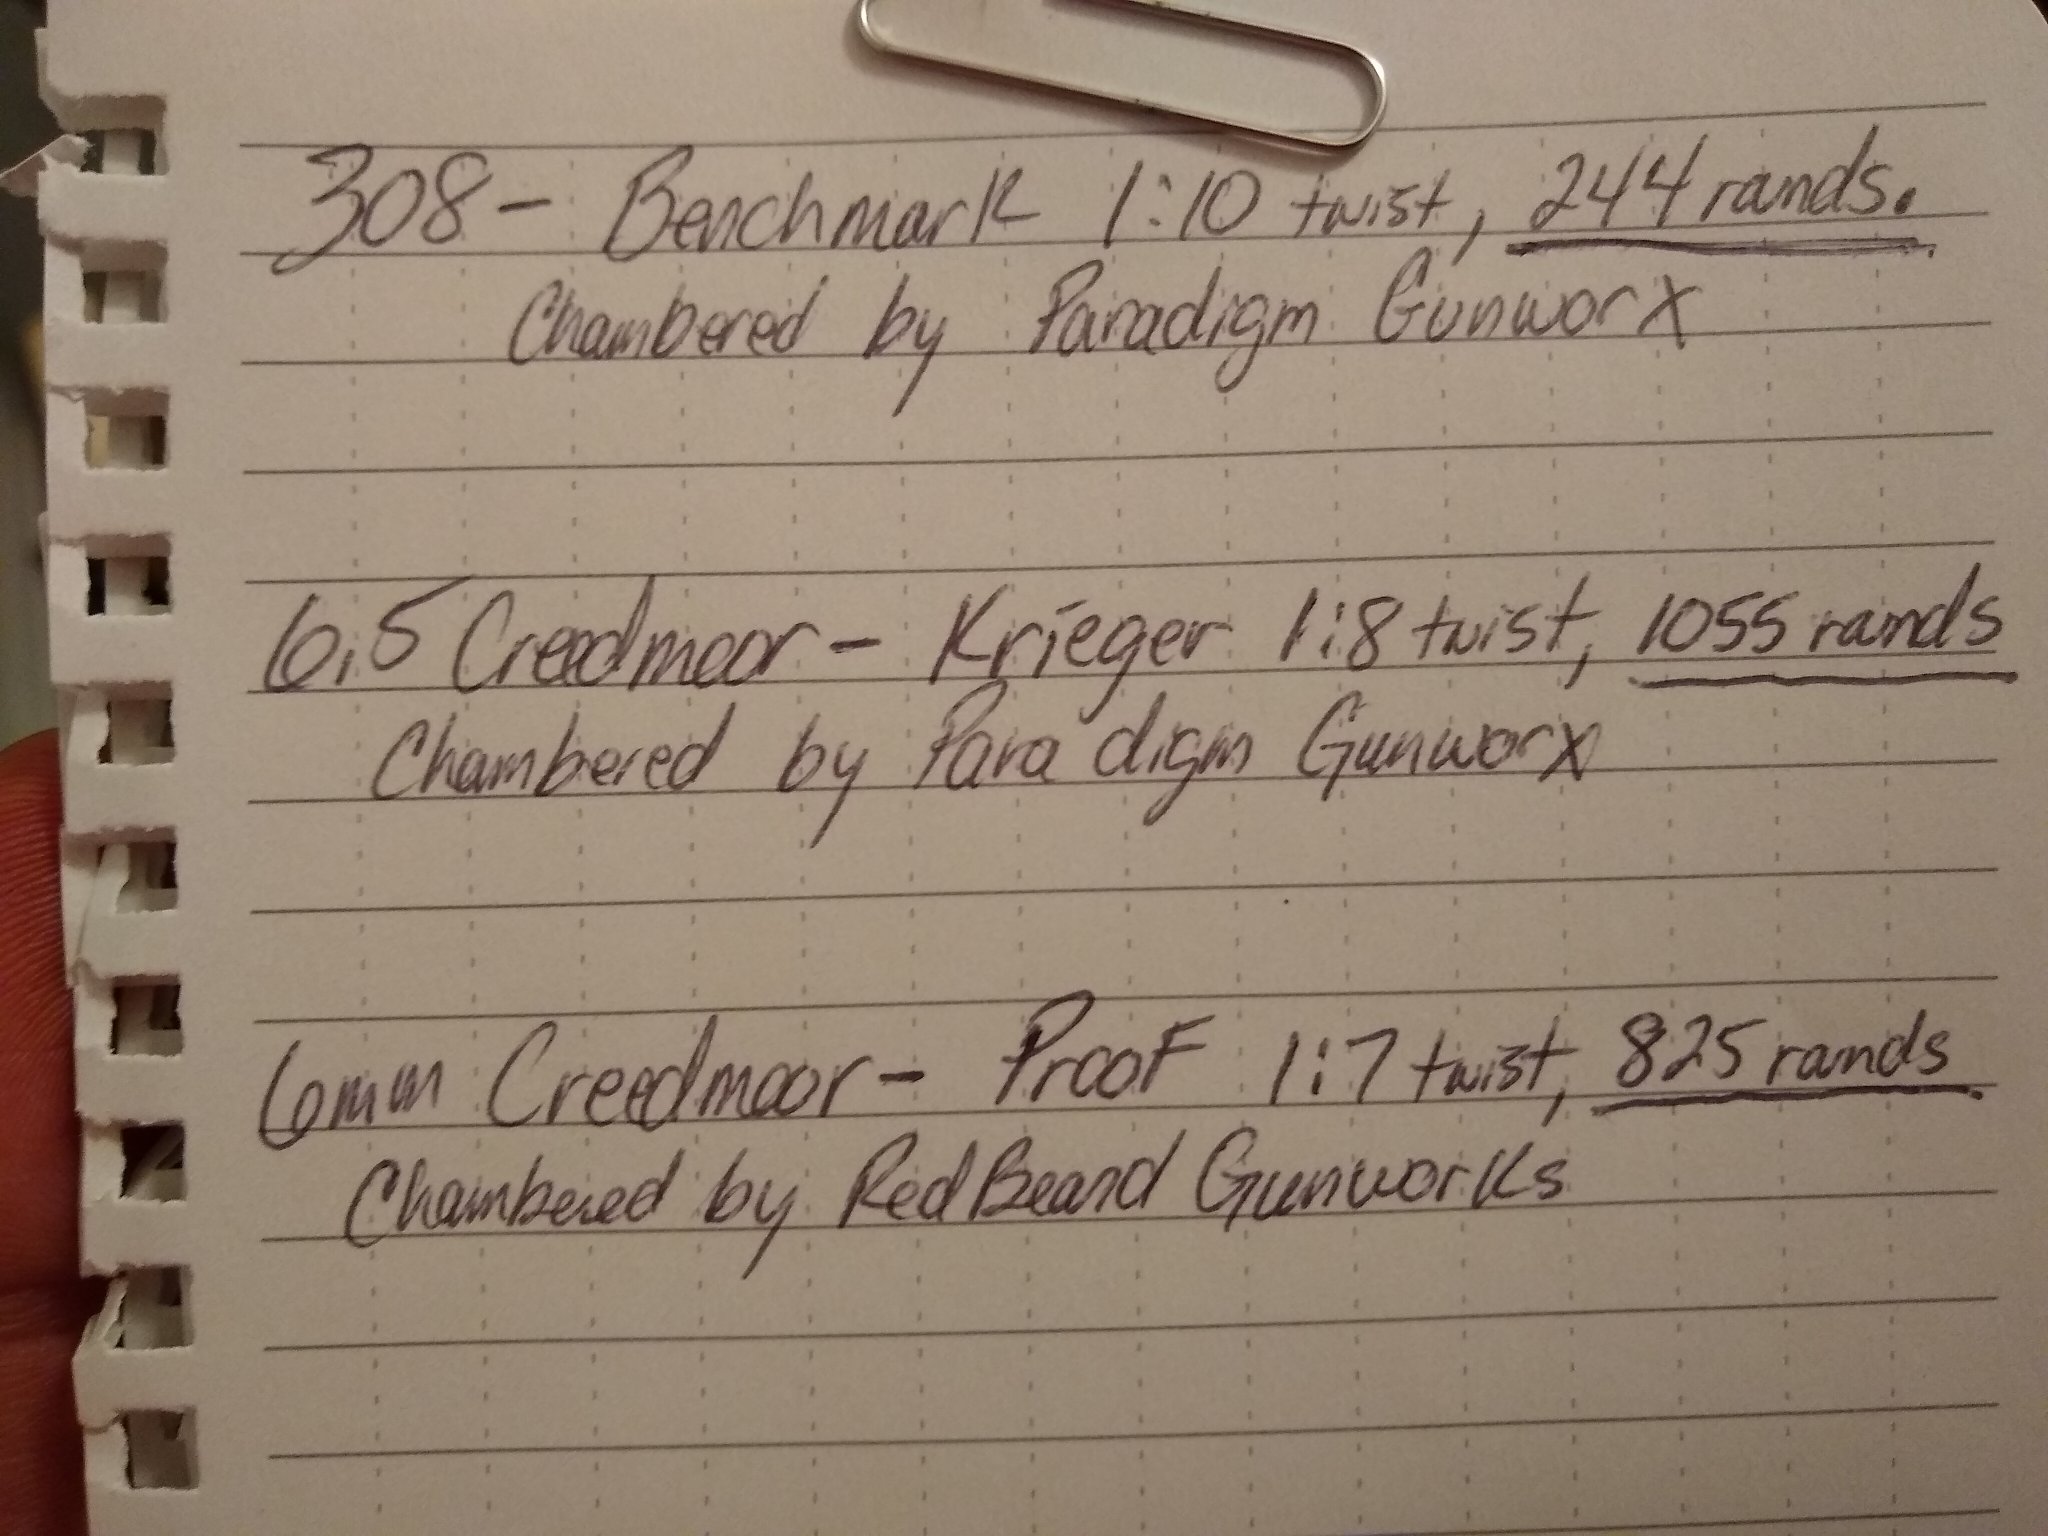 308 - Benchmark 1:10 twist, 244 rounds.
Chambered by Paradigm Gunworx
6.5 Creedmoor - Krieger 1:8 twist, 1055 rounds
Chambered by Paradigm Gunworx
6mm Creedmoor - Proof 1:7 twist, 825 rounds
Chambered by RedBeard Gunworks